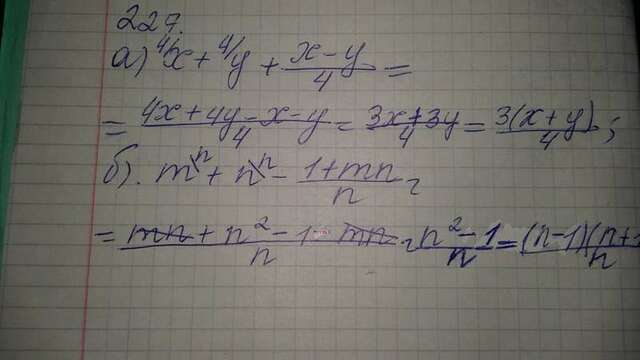 227.
а) ⁴⁄x + ⁴⁄y + (x-y)/4 =
= (4x+4y-x-y)/4 = (3x+3y)/4 = 3(x+y)/4;
б). m\ⁿ + n\ⁿ - (1+mn)/n =
= (mn + n² - 1 - mn)/n = (n² - 1)/n = (n-1)(n+